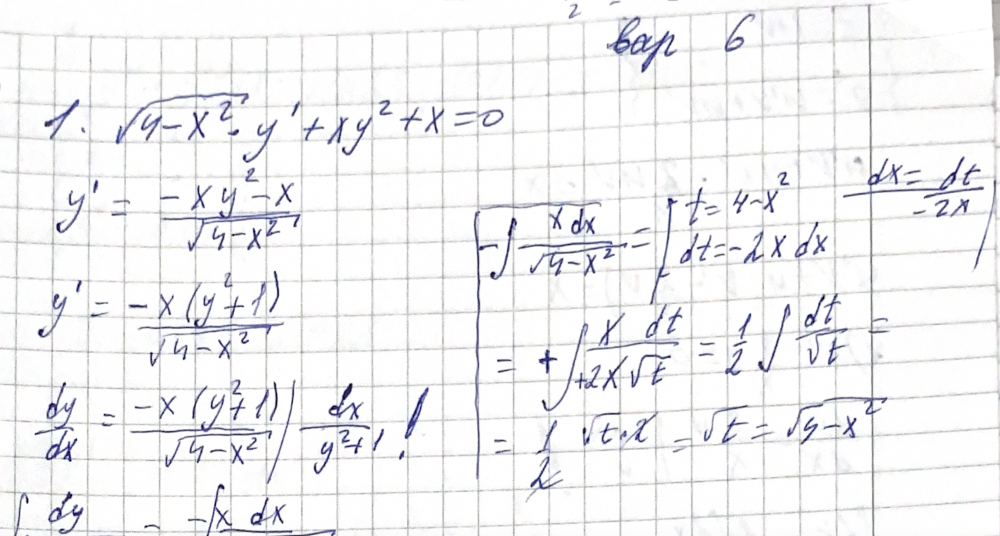 вар 6
1. √(4-x²) · y' + xy² + x = 0
y' = (-xy² - x)/√(4-x²)
y' = (-x(y²+1))/√(4-x²)
dy/dx = (-x(y²+1))/√(4-x²) | dx/(y²+1) !
∫ dy - -∫ x dx
-∫ x dx/√(4-x²) = [ t = 4-x² dx = dt/(-2x)
dt = -2x dx
= +∫ x dt/(+2x√t) = 1/2 ∫ dt/√t =
= 1/2 √t·2 = √t = √(4-x²)